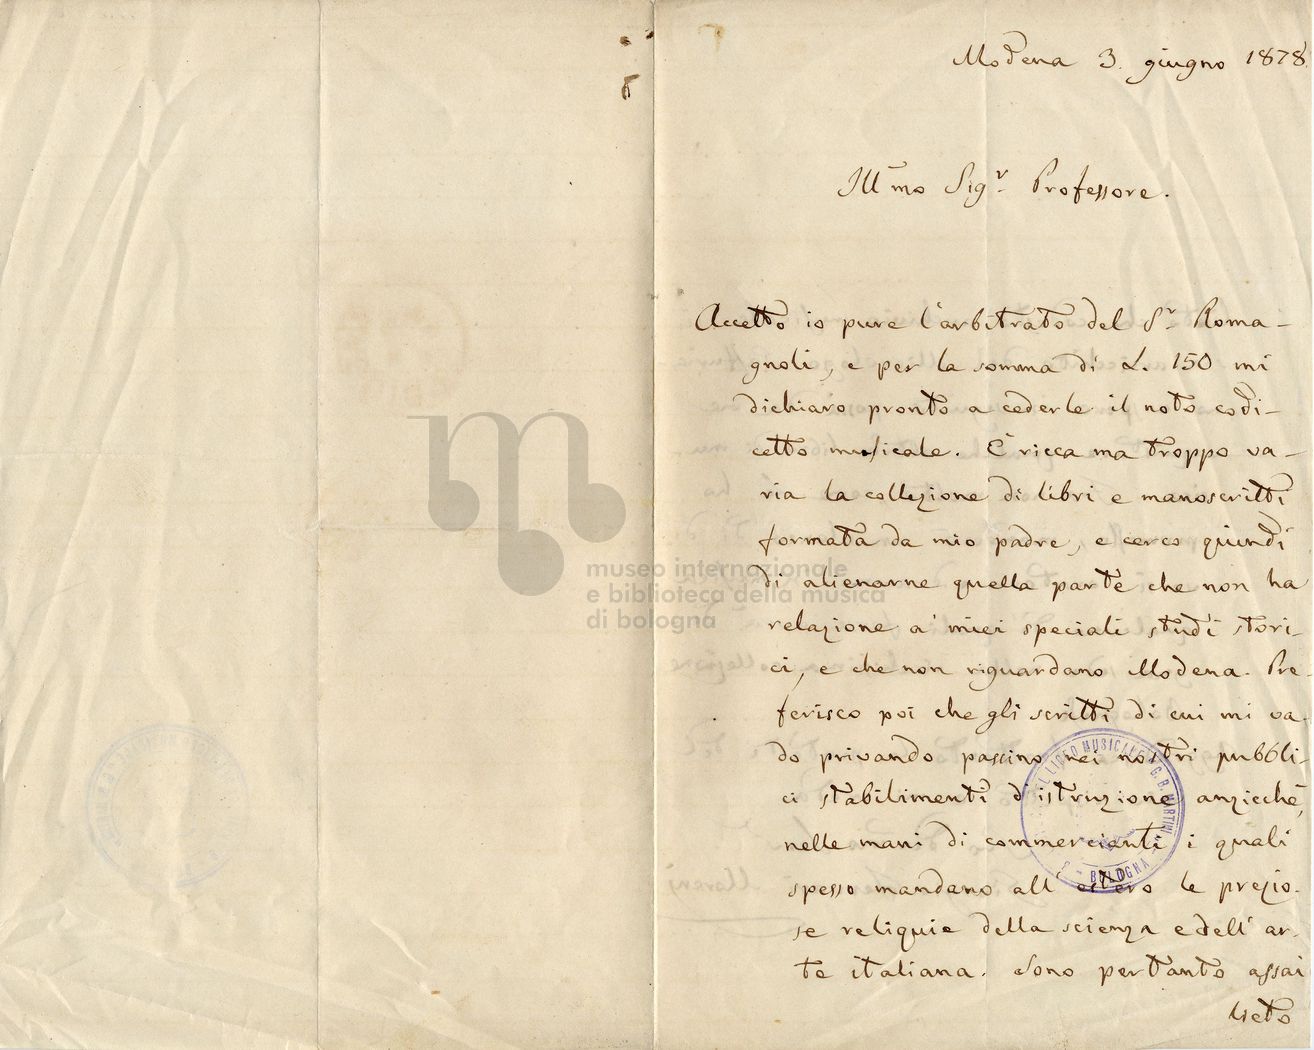 Modena 3. giugno 1878.
Ill.mo Sig.r Professore.
Accetto io pure l'arbitrato del S.r Roma-
gnoli, e per la somma di L. 150 mi
dichiaro pronto a cederle il noto codi-
cetto musicale. È ricca ma troppo va-
ria la collezione di libri e manoscritti
formata da mio padre, e cerco quindi
di alienarne quella parte che non ha
relazione a' miei speciali studi stori-
ci, e che non riguardano Modena. Pre-
ferisco poi che gli scritti di cui mi va-
do privando passino nei nostri pubbli-
ci stabilimenti d'istruzione anzicchè,
nelle mani di commercianti i quali
spesso mandano all'estero le prezio-
se reliquie della scienza e dell'ar-
te italiana. Sono pertanto assai
lieto
museo internazionale
e biblioteca della musica
di bologna
LICEO MUSICALE G. B. MARTINI
BOLOGNA